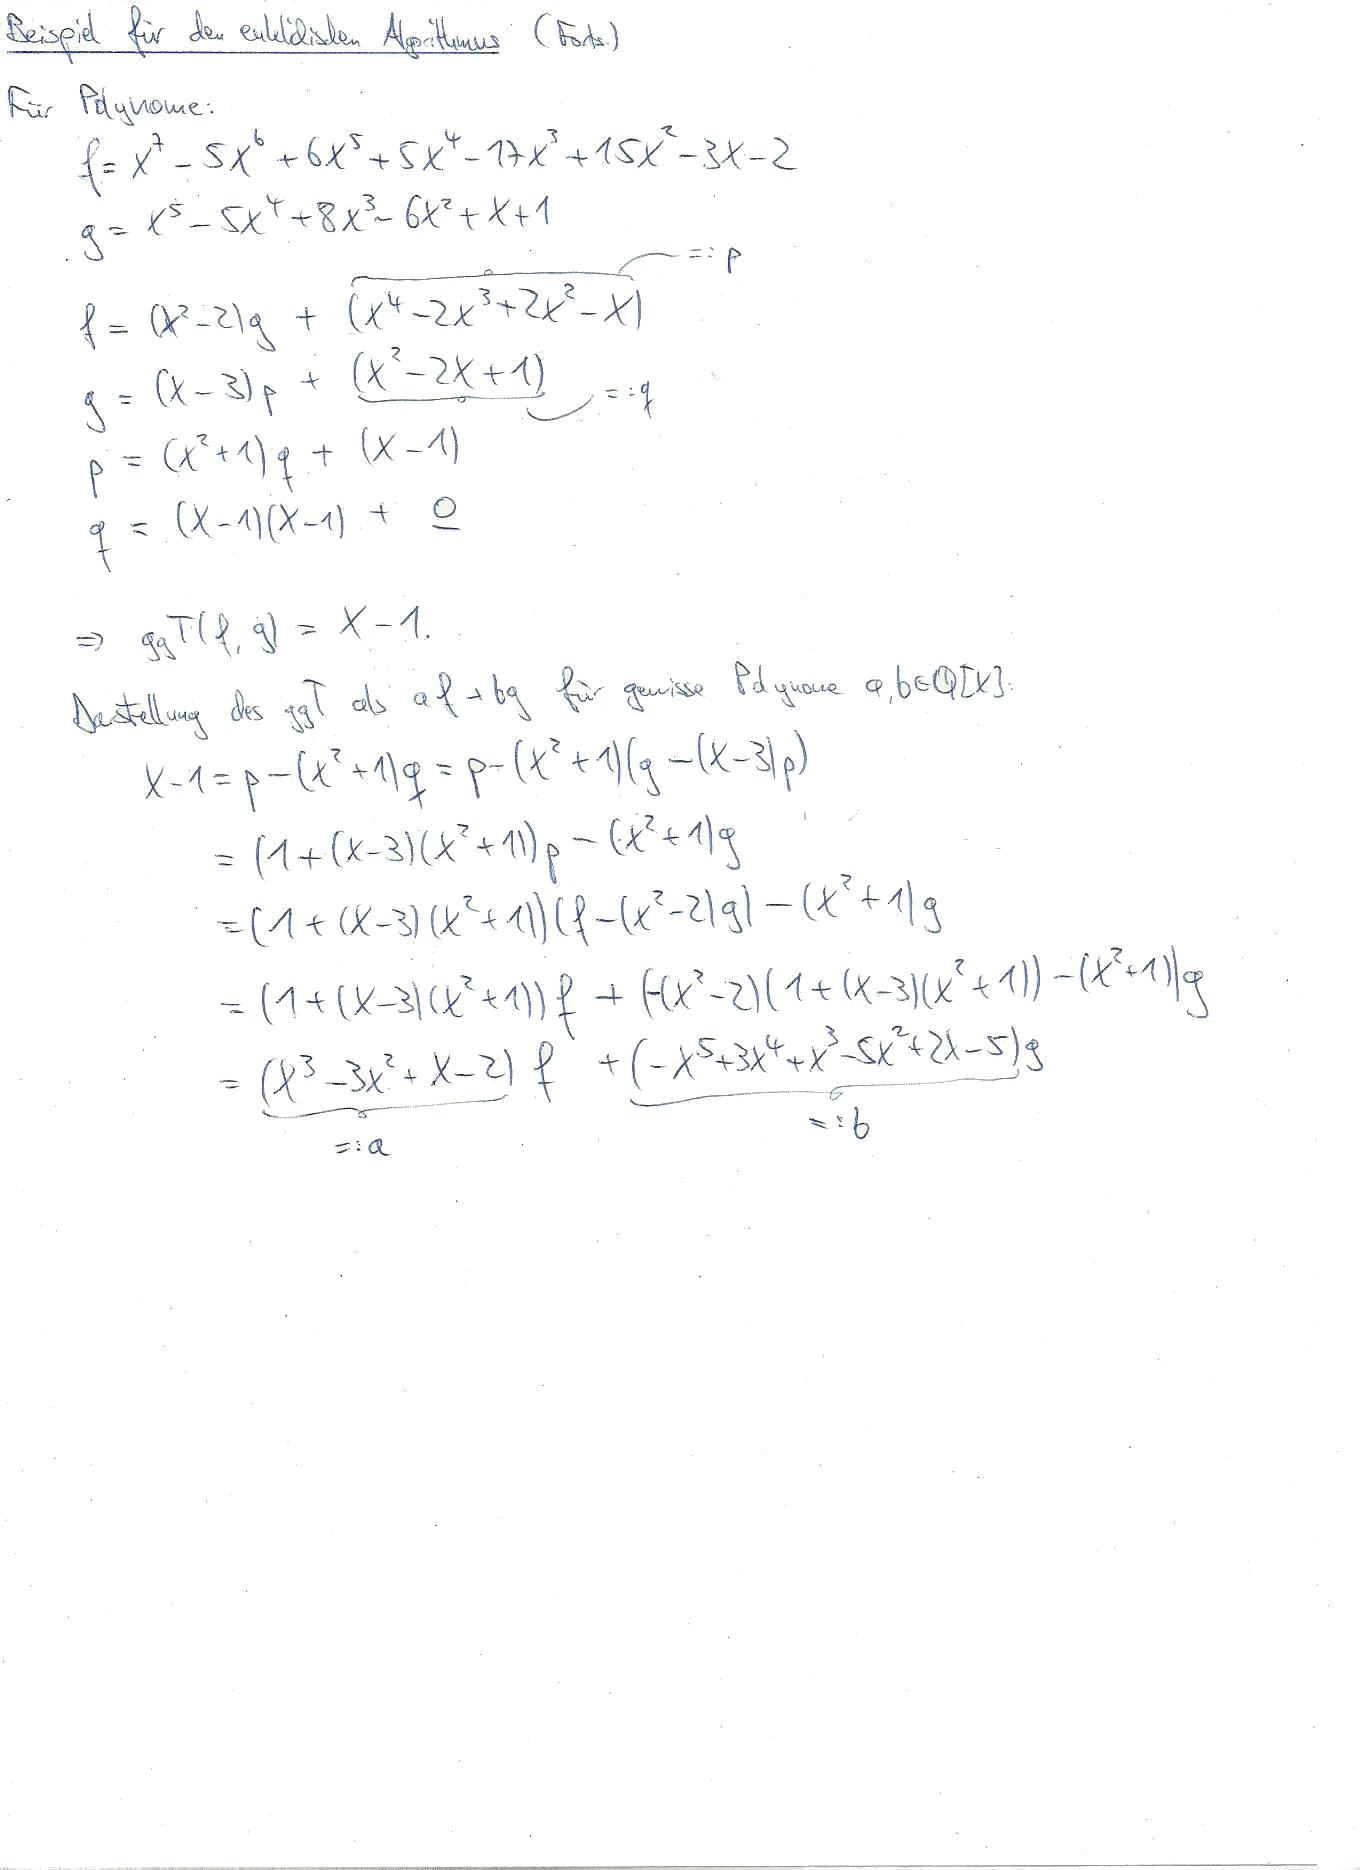 Beispiel für den euklidischen Algorithmus (Forts.)
Für Polynome:
f = X⁷ - 5X⁶ + 6X⁵ + 5X⁴ - 17X³ + 15X² - 3X - 2
g = X⁵ - 5X⁴ + 8X³ - 6X² + X + 1
=: p
f = (X²-2)g + (X⁴-2X³+2X²-X)
g = (X-3)p + (X²-2X+1) =: q
p = (X²+1)q + (X-1)
q = (X-1)(X-1) + 0
⇒ ggT(f, g) = X-1.
Darstellung des ggT als af+bg für gewisse Polynome a,b∈ℚ[X]:
X-1 = p-(X²+1)q = p-(X²+1)(g-(X-3)p)
= (1+(X-3)(X²+1))p - (X²+1)g
= (1+(X-3)(X²+1))(f-(X²-2)g) - (X²+1)g
= (1+(X-3)(X²+1))f + (-(X²-2)(1+(X-3)(X²+1)) - (X²+1))g
= (X³-3X²+X-2) f + (-X⁵+3X⁴+X³-5X²+2X-5)g
=: a =: b